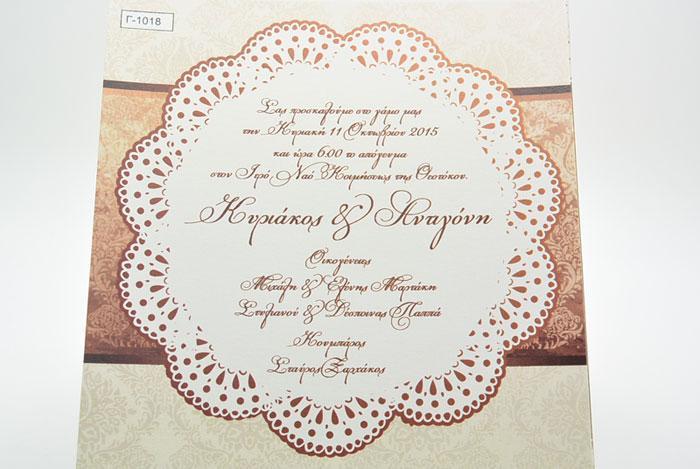 Γ-1018
Σας προσκαλούμε στο γάμο μας
την Κυριακή 11 Οκτωβρίου 2015
και ώρα 6.00 το απόγευμα
στον Ιερό Ναό Κοιμήσεως της Θεοτόκου.
Κυριάκος & Ανταγόνη
Οικογένειες
Μιχάλη & Ελένης Μαρτάκη
Στυλιανού & Δέσποινας Παππά
Κουμπάρος
Σταύρος Ζαρχάκος